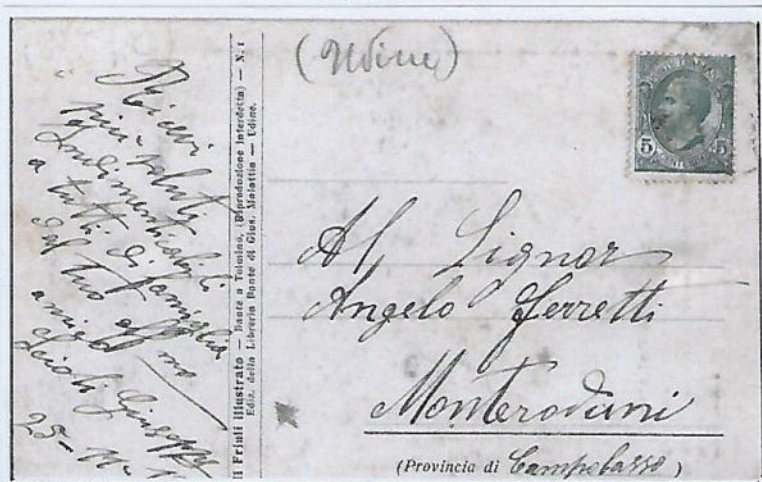 Ricevi
più saluti
Indimenticabili
a tutti di famiglia
dal tuo aff mo
amico
Giuseppe
25-11-
Il Friuli illustrato — Dante a Tolmino. (Riproduzione interdetta) — N. 1
Ediz. della Libreria Dante di Gius. Malattia — Udine.
(Udine)
5 5
Al Signor
Angelo Ferretti
Monteroduni
(Provincia di Campobasso)